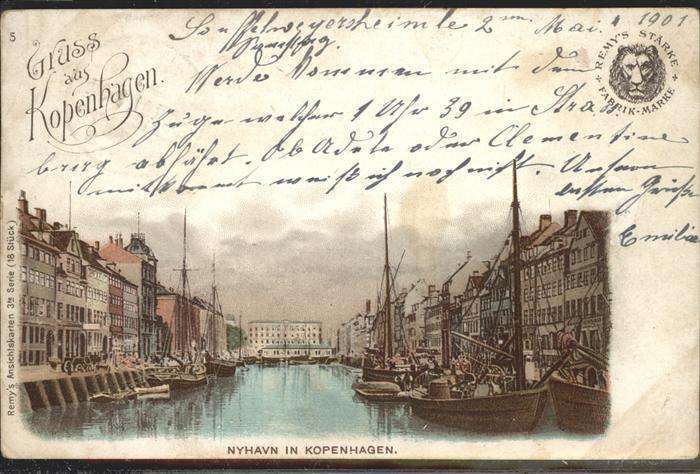 5
Gruss
aus
Kopenhagen.
REMY'S STÄRKE
FABRIK-MARKE
2 Mai. 1901
Werde kommen mit dem
Zuge welcher 1 Uhr 39 in Strass
burg abfährt. Ob Adele oder Clementine
mitkommt weiß ich noch nicht.
besten Grüße
Emilie
Remy's Ansichtskarten 3te Serie (18 Stück)
NYHAVN IN KOPENHAGEN.